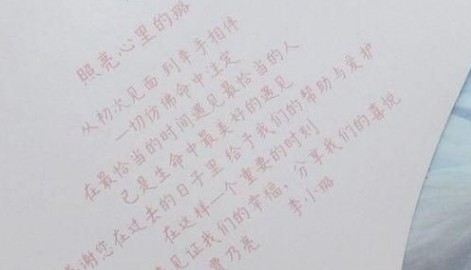 照亮心里的璐
从初次见面到牵手相伴
一切仿佛命中注定
在最恰当的时间遇见最恰当的人
已是生命中最美好的遇见
谢您在过去的日子里给予我们的帮助与爱护
在这样一个重要的时刻
见证我们的幸福，分享我们的喜悦
贾乃亮 李小璐